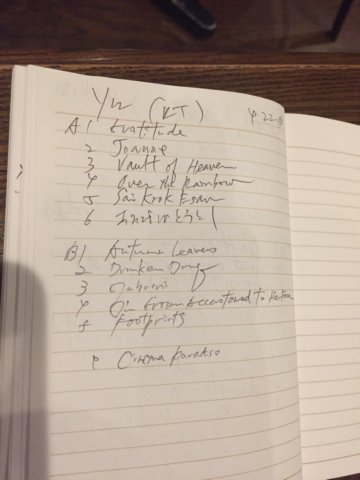 Yu (RT) 4.22.
A1 Gratitude
2 Joanne
3 Vault of Heaven
4 Over the Rainbow
5 Sai Krok Esan
6
B1 Autumn Leaves
2 Drunken
3
4 I've Grown Accustomed to Her Face
5 Footprints
e Cinema Paradiso